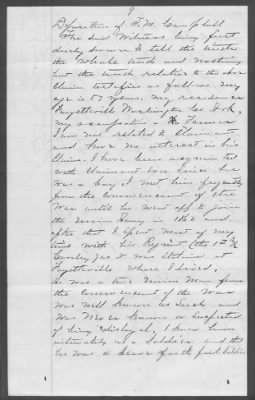 9
Deposition of F. M. Campbell
The said Witness being first
duly sworn to tell the truth
the whole truth and nothing
but the truth relative to the above
Claim testifies as follows. My
age is 57 years. my residence
Fayetteville Washington Co Ark,
my occupation a Farmer
I am not related to Claimant
and have no interest in his
Claim. I have been acquainted
with Claimant ever since he
was a boy. I met him frequently
from the commencement of the
War until he went off to join
the Union Army in 1862 and
after that I spent most of my
time with his Regiment (the 1st
Cavalry) as it was stationed at
Fayetteville where I lived,
He was a true Union Man from
the commencement of the War
was well known as such and
was never known or suspected
of being disloyal, I knew him
intimately as a Soldier and that
he was a brave faithful Soldier